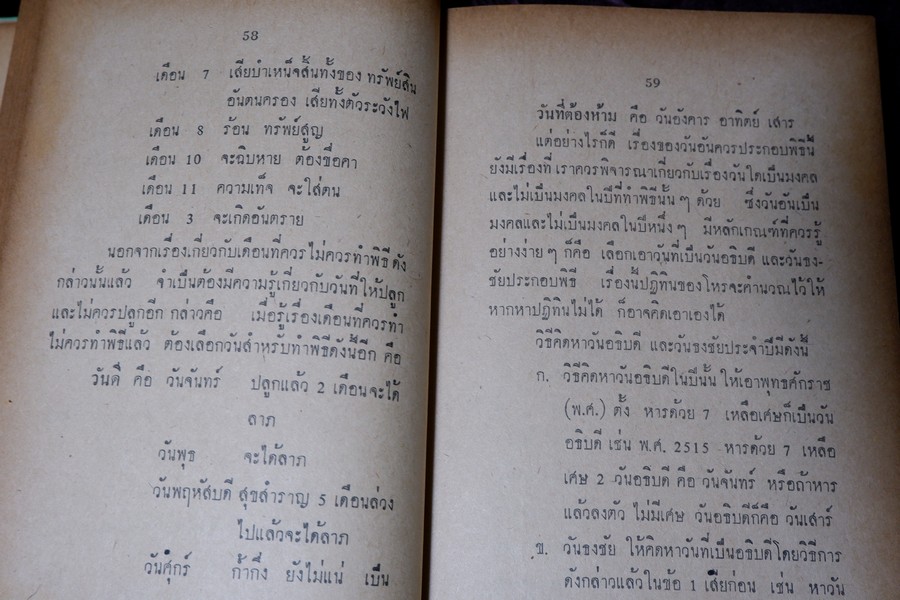 58
เดือน 7 เสียบำเหน็จสิ้นทั้งของ ทรัพย์สิน
อันตนครอง เสียทั้งตัวระวังไฟ
เดือน 8 ร้อน ทรัพย์สูญ
เดือน 10 จะฉิบหาย ต้องขื่อคา
เดือน 11 ความเท็จ จะใส่ตน
เดือน 3 จะเกิดอันตราย
นอกจากเรื่องเกี่ยวกับเดือนที่ควรไม่ควรทำพิธี ดัง
กล่าวนั้นแล้ว จำเป็นต้องมีความรู้เกี่ยวกับวันที่ให้ปลูก
และไม่ควรปลูกอีก กล่าวคือ เมื่อรู้เรื่องเดือนที่ควรทำ
ไม่ควรทำพิธีแล้ว ต้องเลือกวันสำหรับทำพิธีดังนี้อีก คือ
วันดี คือ วันจันทร์ ปลูกแล้ว 2 เดือนจะได้
ลาภ
วันพุธ จะได้ลาภ
วันพฤหัสบดี สุขสำราญ 5 เดือนล่วง
ไปแล้วจะได้ลาภ
วันศุกร์ ก้ำกึ่ง ยังไม่แน่ เป็น
59
วันที่ต้องห้าม คือ วันอังคาร อาทิตย์ เสาร์
แต่อย่างไรก็ดี เรื่องของวันอันควรประกอบพิธีนี้
ยังมีเรื่องที่ เราควรพิจารณาเกี่ยวกับเรื่องวันใดเป็นมงคล
และไม่เป็นมงคลในปีที่ทำพิธีนั้น ๆ ด้วย ซึ่งวันอันเป็น
มงคลและไม่เป็นมงคลในปีหนึ่ง ๆ มีหลักเกณฑ์ที่ควรรู้
อย่างง่าย ๆ ก็คือ เลือกเอาวันที่เป็นวันอธิบดี และวันธง-
ชัยประกอบพิธี เรื่องนี้ปฏิทินของโหรจะคำนวณไว้ให้
หากหาปฏิทินไม่ได้ ก็อาจคิดเอาเองได้
วิธีคิดหาวันอธิบดี และวันธงชัยประจำปีมีดังนี้
ก. วิธีคิดหาวันอธิบดีในปีนั้น ให้เอาพุทธศักราช
(พ.ศ.) ตั้ง หารด้วย 7 เหลือเศษก็เป็นวัน
อธิบดี เช่น พ.ศ. 2515 หารด้วย 7 เหลือ
เศษ 2 วันอธิบดี คือ วันจันทร์ หรือถ้าหาร
แล้วลงตัว ไม่มีเศษ วันอธิบดีก็คือ วันเสาร์
ข. วันธงชัย ให้คิดหาวันที่เป็นอธิบดีโดยวิธีการ
ดังกล่าวแล้วในข้อ 1 เสียก่อน เช่น หาวัน